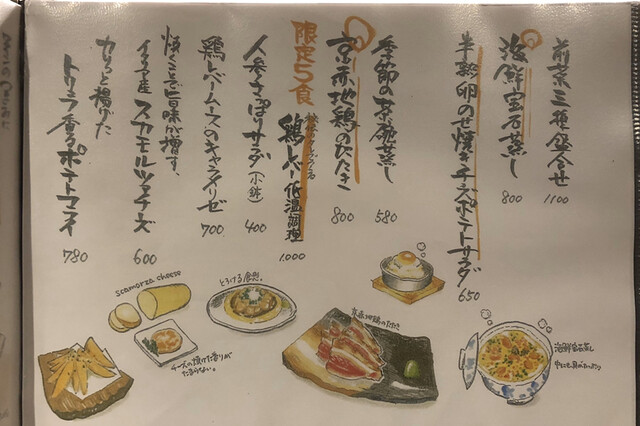 前菜三種盛合せ
1100
海鮮宝石蒸し
800
半熟卵のせ焼きチーズポテトサラダ
650
季節の茶碗蒸し
580
京赤地鶏のたたき
800
限定5食
鶏レバー低温調理
1.000
人参さっぱりサラダ(小鉢)
400
鶏レバームースのキャラメリゼ
700
焼くことで旨味が増す、
イタリア産スカモルツァチーズ
600
カリっと揚げた
トリュフ香るポテトフライ
780
scamorza cheese
とろける食感。
京赤地鶏のたたき
海鮮宝石蒸し
チーズの焼けた香りが
たまらない。